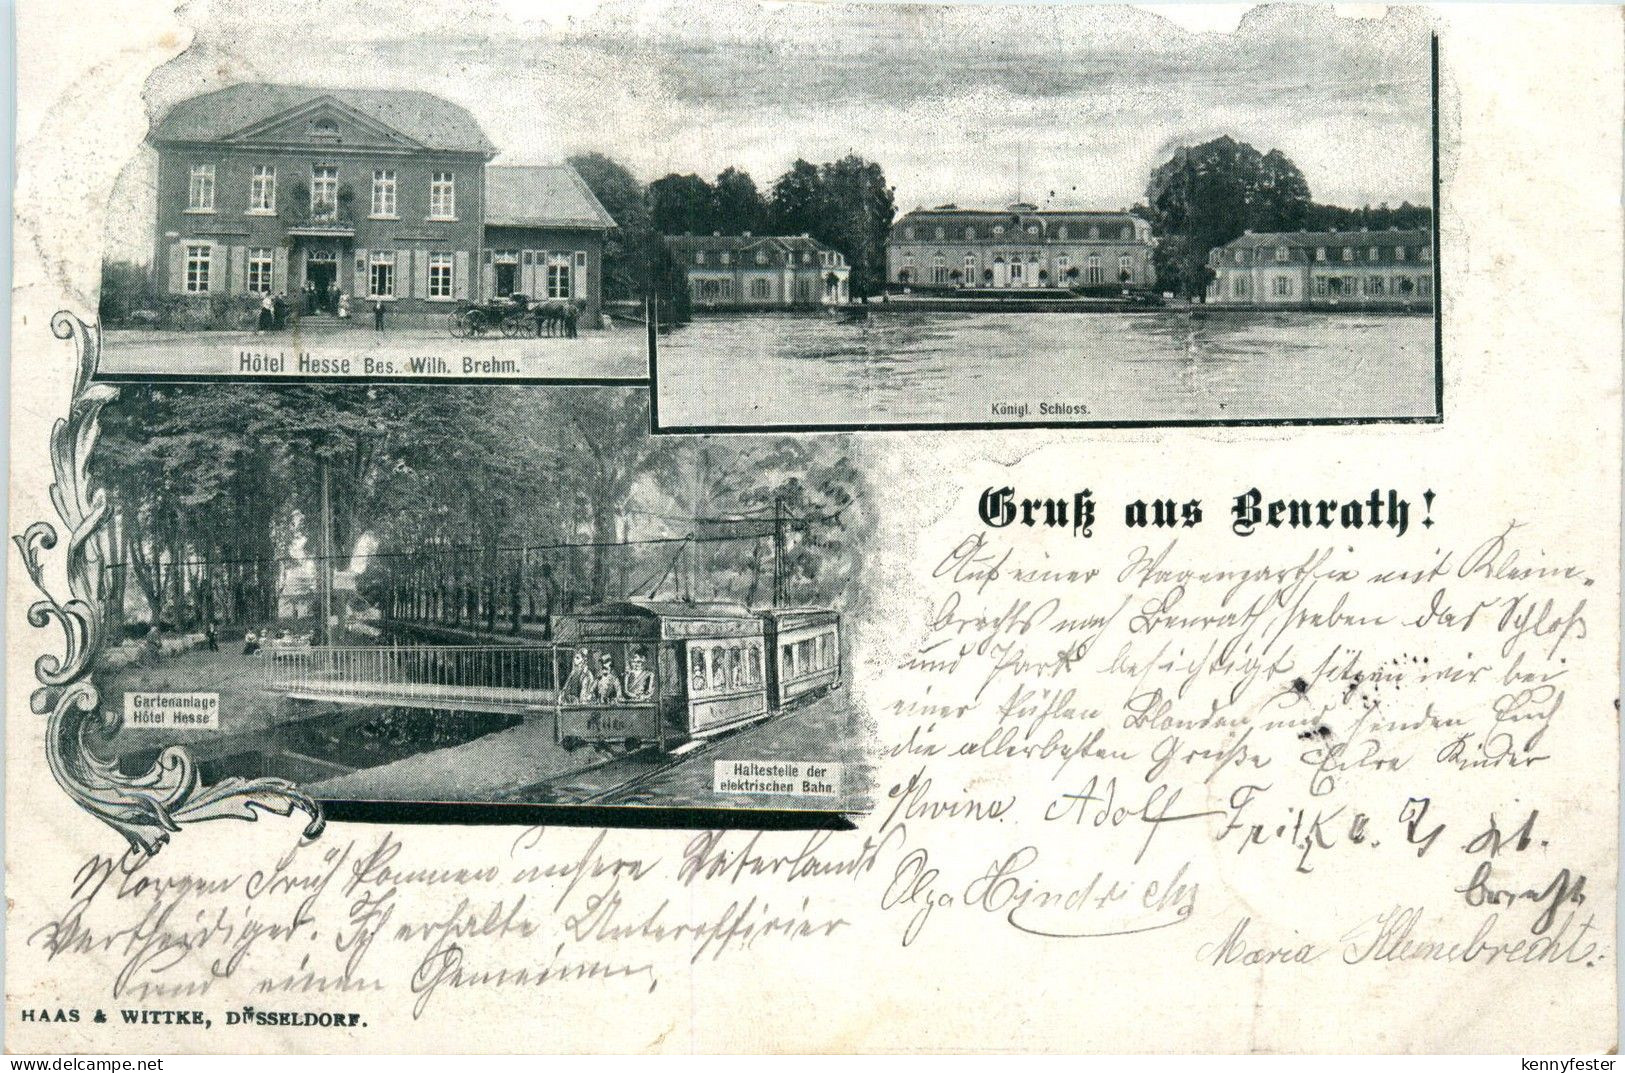 Hôtel Hesse Bes. Wilh. Brehm.
Königl. Schloss.
Gartenanlage
Hôtel Hesse.
Haltestelle der
elektrischen Bahn.
Gruß aus Benrath!
Auf einer Wagenparthie mit Kleine-
brechts nach Benrath, soeben das Schloß
und Park besichtigt sitzen wir bei
einer kühlen Blonden und senden Euch
die allerbesten Grüße Eure Kinder
Alwine. Adolf Fritz
brecht
Olga Hindrichs
Maria Kleinebrecht.
Morgen Früh kommen unsere Vaterlands
Vertheidiger. Ich erhalte Unteroffizier
und einen Gemeinen.
HAAS & WITTKE, DÜSSELDORF.
kennyfester